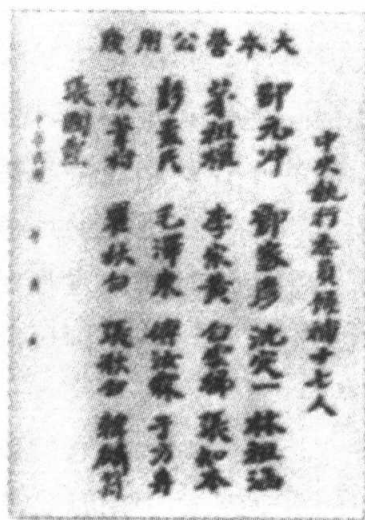 大本營公用牋
中央執行委員候補十七人
邵元冲 鄧家彥 沈定一 林祖涵
茅祖權 李宗黃 白雲梯 張知本
彭素民 毛澤東 傅汝霖 于方舟
張葦村 瞿秋白 張秋白 韓麟符
張國燾
中華民國 年 月 日